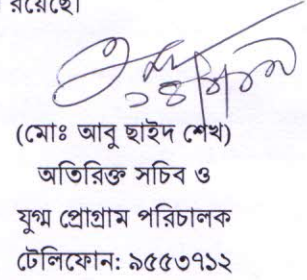 রয়েছে।
(মোঃ আবু ছাইদ শেখ)
অতিরিক্ত সচিব ও
যুগ্ম প্রোগ্রাম পরিচালক
টেলিফোন: ৯৫৫৩৭১২